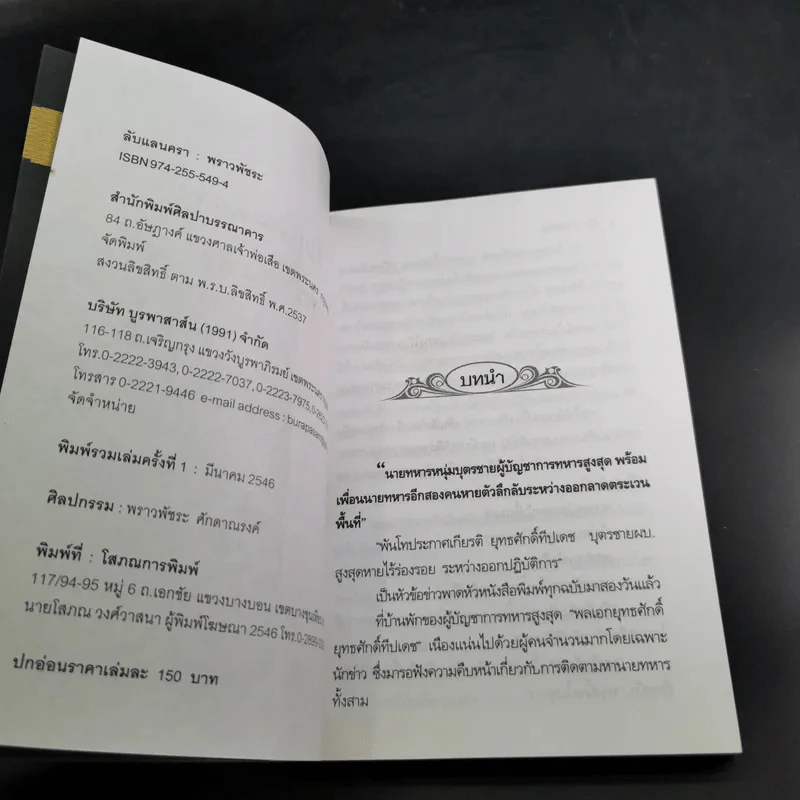 ลับแลนครา : พราวพัชระ
ISBN 974-255-549-4
สำนักพิมพ์ศิลปาบรรณาคาร
84 ถ.อัษฎางค์ แขวงศาลเจ้าพ่อเสือ เขตพระนคร
จัดพิมพ์
สงวนลิขสิทธิ์ ตาม พ.ร.บ.ลิขสิทธิ์ พ.ศ.2537
บริษัท บูรพาสาส์น (1991) จำกัด
116-118 ถ.เจริญกรุง แขวงวังบูรพาภิรมย์ เขตพระนคร
โทร.0-2222-3943, 0-2222-7037, 0-2223-7975,
โทรสาร 0-2221-9446 e-mail address :
จัดจำหน่าย
พิมพ์รวมเล่มครั้งที่ 1 : มีนาคม 2546
ศิลปกรรม : พราวพัชระ ศักดาณรงค์
พิมพ์ที่ : โสภณการพิมพ์
117/94-95 หมู่ 6 ถ.เอกชัย แขวงบางบอน
นายโสภณ วงศ์วาสนา ผู้พิมพ์โฆษณา 2546
ปกอ่อนราคาเล่มละ 150 บาท
บทนำ
“นายทหารหนุ่มบุตรชายผู้บัญชาการทหารสูงสุด พร้อม
เพื่อนนายทหารอีกสองคนหายตัวลึกลับระหว่างออกลาดตระเวน
พื้นที่”
“พันโทประกาศเกียรติ ยุทธศักดิ์ทีปเดช บุตรชายผบ.
สูงสุดหายไร้ร่องรอย ระหว่างออกปฏิบัติการ”
เป็นหัวข้อข่าวพาดหัวหนังสือพิมพ์ทุกฉบับมาสองวันแล้ว
ที่บ้านพักของผู้บัญชาการทหารสูงสุด “พลเอกยุทธศักดิ์
ยุทธศักดิ์ทีปเดช” เนืองแน่นไปด้วยผู้คนจำนวนมากโดยเฉพาะ
นักข่าว ซึ่งมารอฟังความคืบหน้าเกี่ยวกับการติดตามหานายทหาร
ทั้งสาม